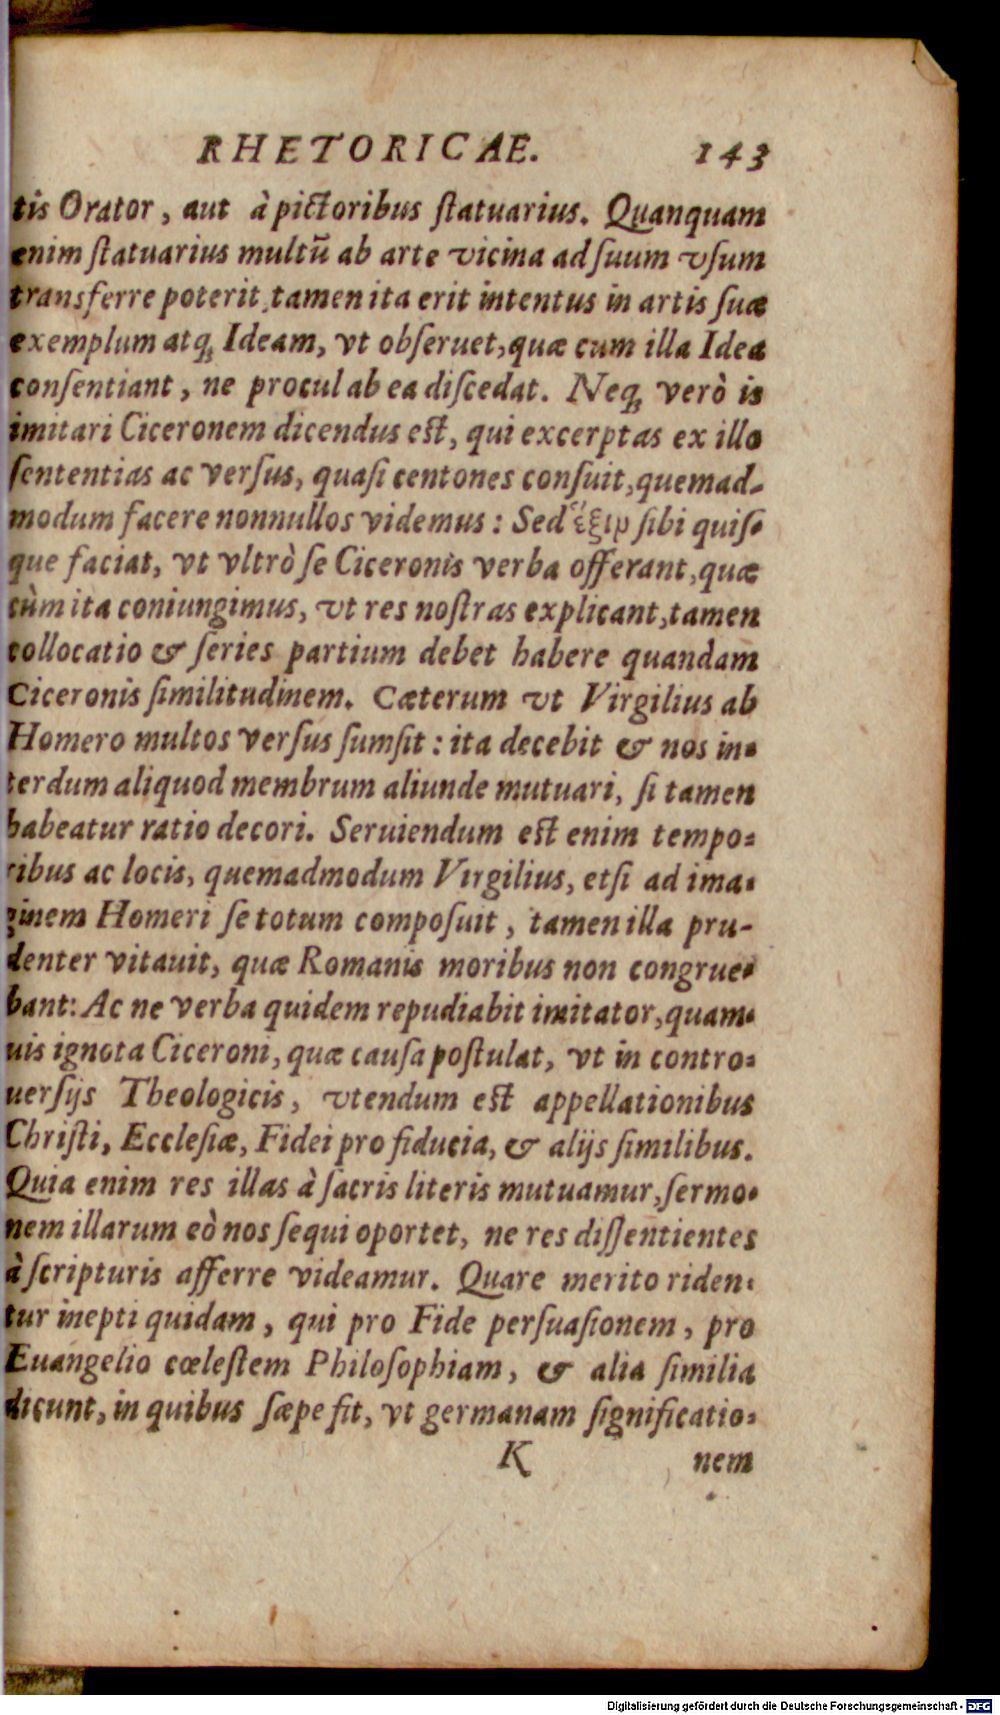 RHETORICAE. 143
tis Orator, aut à pictoribus ſtatuarius. Quanquam
enim ſtatuarius multū ab arte vicina ad ſuum vſum
transferre poterit, tamen ita erit intentus in artis ſuæ
exemplum atq; Ideam, vt obſeruet, quæ cum illa Idea
conſentiant, ne procul ab ea diſcedat. Neq; verò is
imitari Ciceronem dicendus eſt, qui excerptas ex illo
ſententias ac verſus, quaſi centones conſuit, quemad-
modum facere nonnullos videmus: Sed ἕξιν ſibi quiſ-
que faciat, vt vltrò ſe Ciceronis verba offerant, quæ
cùm ita coniungimus, vt res noſtras explicant, tamen
collocatio & ſeries partium debet habere quandam
Ciceronis ſimilitudinem. Cæterum vt Virgilius ab
Homero multos verſus ſumſit: ita decebit & nos in-
terdum aliquod membrum aliunde mutuari, ſi tamen
habeatur ratio decori. Seruiendum eſt enim tempo-
ribus ac locis, quemadmodum Virgilius, etſi ad ima-
ginem Homeri ſe totum compoſuit, tamen illa pru-
denter vitauit, quæ Romanis moribus non congrue-
bant: Ac ne verba quidem repudiabit imitator, quam-
uis ignota Ciceroni, quæ cauſa poſtulat, vt in contro-
uerſijs Theologicis, vtendum eſt appellationibus
Chriſti, Eccleſiæ, Fidei pro fiducia, & alijs ſimilibus.
Quia enim res illas à ſacris literis mutuamur, ſermo-
nem illarum eò nos ſequi oportet, ne res diſſentientes
à ſcripturis afferre videamur. Quare merito riden-
tur inepti quidam, qui pro Fide perſuaſionem, pro
Euangelio cœleſtem Philoſophiam, & alia ſimilia
dicunt, in quibus ſæpe fit, vt germanam ſignificatio-
K nem
Digitalisierung gefördert durch die Deutsche Forschungsgemeinschaft - DFG